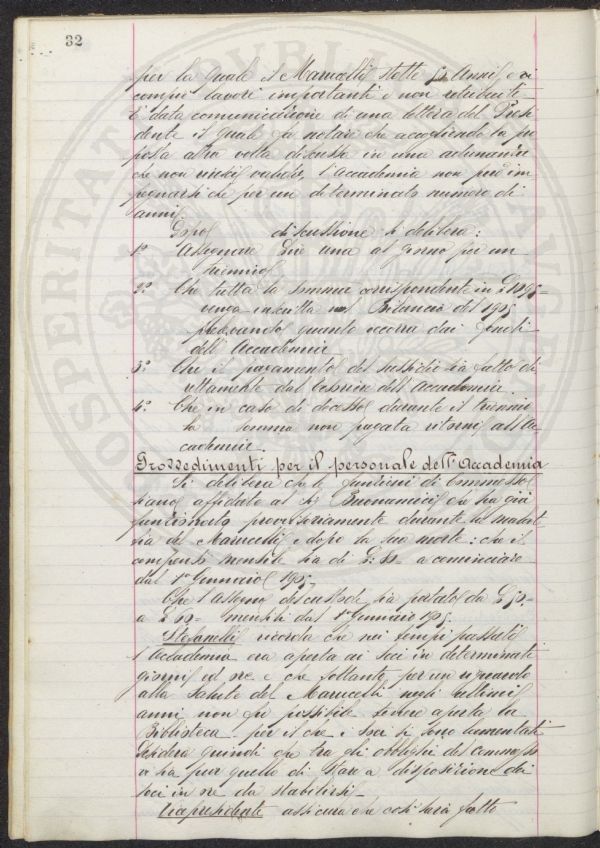 32
per la quale il Marucelli stette 52 anni, e vi
compiè lavori importanti e non retribuiti
È data comunicazione di una lettera del Presi
dente il quale fa notare che accogliendo la pro
posta altra volta discussa in una adunanza
che non riuscì valida, l'Accademia non può im
pegnarsi che per un determinato numero di
anni.
Dopo discussione si delibera:
1º Assegnare Lire una al giorno per un
triennio
2º Che tutta la somma corrispondente in L 1095-
venga inscritta nel Bilancio del 1905
prelevando quanto occorra dai fondi
dell'Accademia
3º Che il pagamento del sussidio sia fatto di
rettamente dal Cassiere dell'Accademia
4º Che in caso di decesso durante il triennio
la somma non pagata ritorni all'Ac
cademia.
Provvedimenti per il personale dell'Accademia
Si delibera che le funzioni di Commesso
siano affidate al Sig Buonamici che ha già
funzionato provvisoriamente durante la malat
tia del Marucelli e dopo la sua morte: che il
compenso mensile sia di L: a cominciare
dal 1º Gennaio 1905.
Che l'assegno del custode sia portato da L 50-
a L 60- mensili dal 1º Gennaio 1905.
Stefanelli ricorda che nei tempi passati
l'Accademia era aperta ai soci in determinati
giorni ed ore e che soltanto per un riguardo
alla salute del Marucelli negli ultimi
anni non fu possibile tenere aperta la
Biblioteca per il che i soci si sono lamentati
desidera quindi che tra gli obblighi del Commesso
vi sia pur quello di stare a disposizione dei
soci in ore da stabilirsi-
Vicepresidente assicura che così sarà fatto